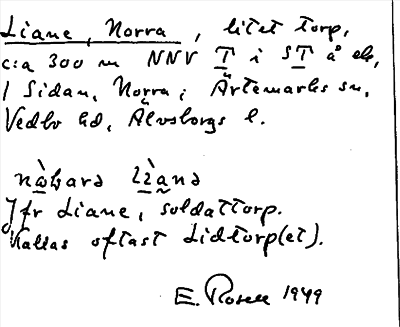 Liane, Norra, litet torp,
c:a 300 m NNV T i ST å ek,
/ Sidan, Norra; Ärtemarks sn,
Vedbo hd, Älvsborgs l.
nὰbarə lìanə
Jfr Liane, soldattorp.
Kallas oftast Lidtorp(et).
E. Rosell 1949